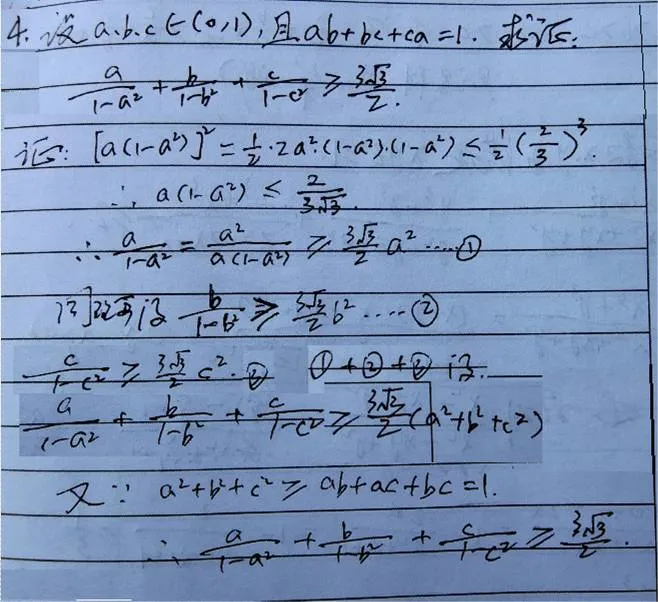 4. 设 a.b.c∈(0,1), 且 ab+bc+ca=1. 求证:
a/(1-a²) + b/(1-b²) + c/(1-c²) ≥ 3√3/2.
证: [a(1-a²)]² = 1/2·2a²·(1-a²)·(1-a²) ≤ 1/2(2/3)³.
∴ a(1-a²) ≤ 2/(3√3).
∴ a/(1-a²) = a²/(a(1-a²)) ≥ 3√3/2 a² ……①
同理可得 b/(1-b²) ≥ 3√3/2 b² ……②
c/(1-c²) ≥ 3√3/2 c². ③ ①+②+③得.
a/(1-a²) + b/(1-b²) + c/(1-c²) ≥ 3√3/2(a²+b²+c²)
又∵ a²+b²+c² ≥ ab+ac+bc=1.
∴ a/(1-a²) + b/(1-b²) + c/(1-c²) ≥ 3√3/2.